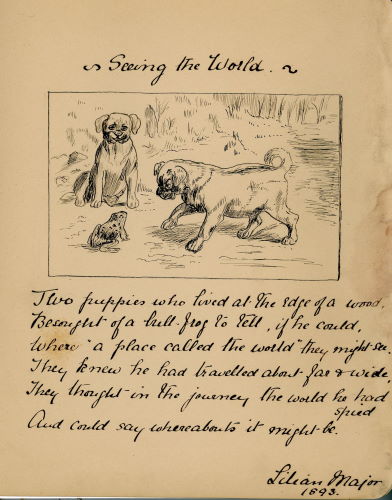 ~ Seeing the World. ~
Two puppies who lived at the edge of a wood,
Besought of a bull-frog to tell, if he could,
Where "a place called the world" they might see,
They knew he had travelled about far & wide
They thought in the journey the world he had
spied
And could say whereabouts it might be.
Lilian Major
1893.